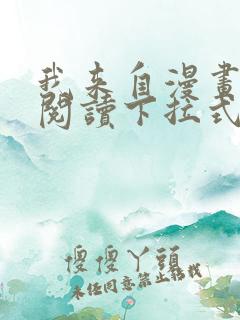 我來自漫畫
閱讀下拉式
傻傻丫頭
未經同意禁止轉載